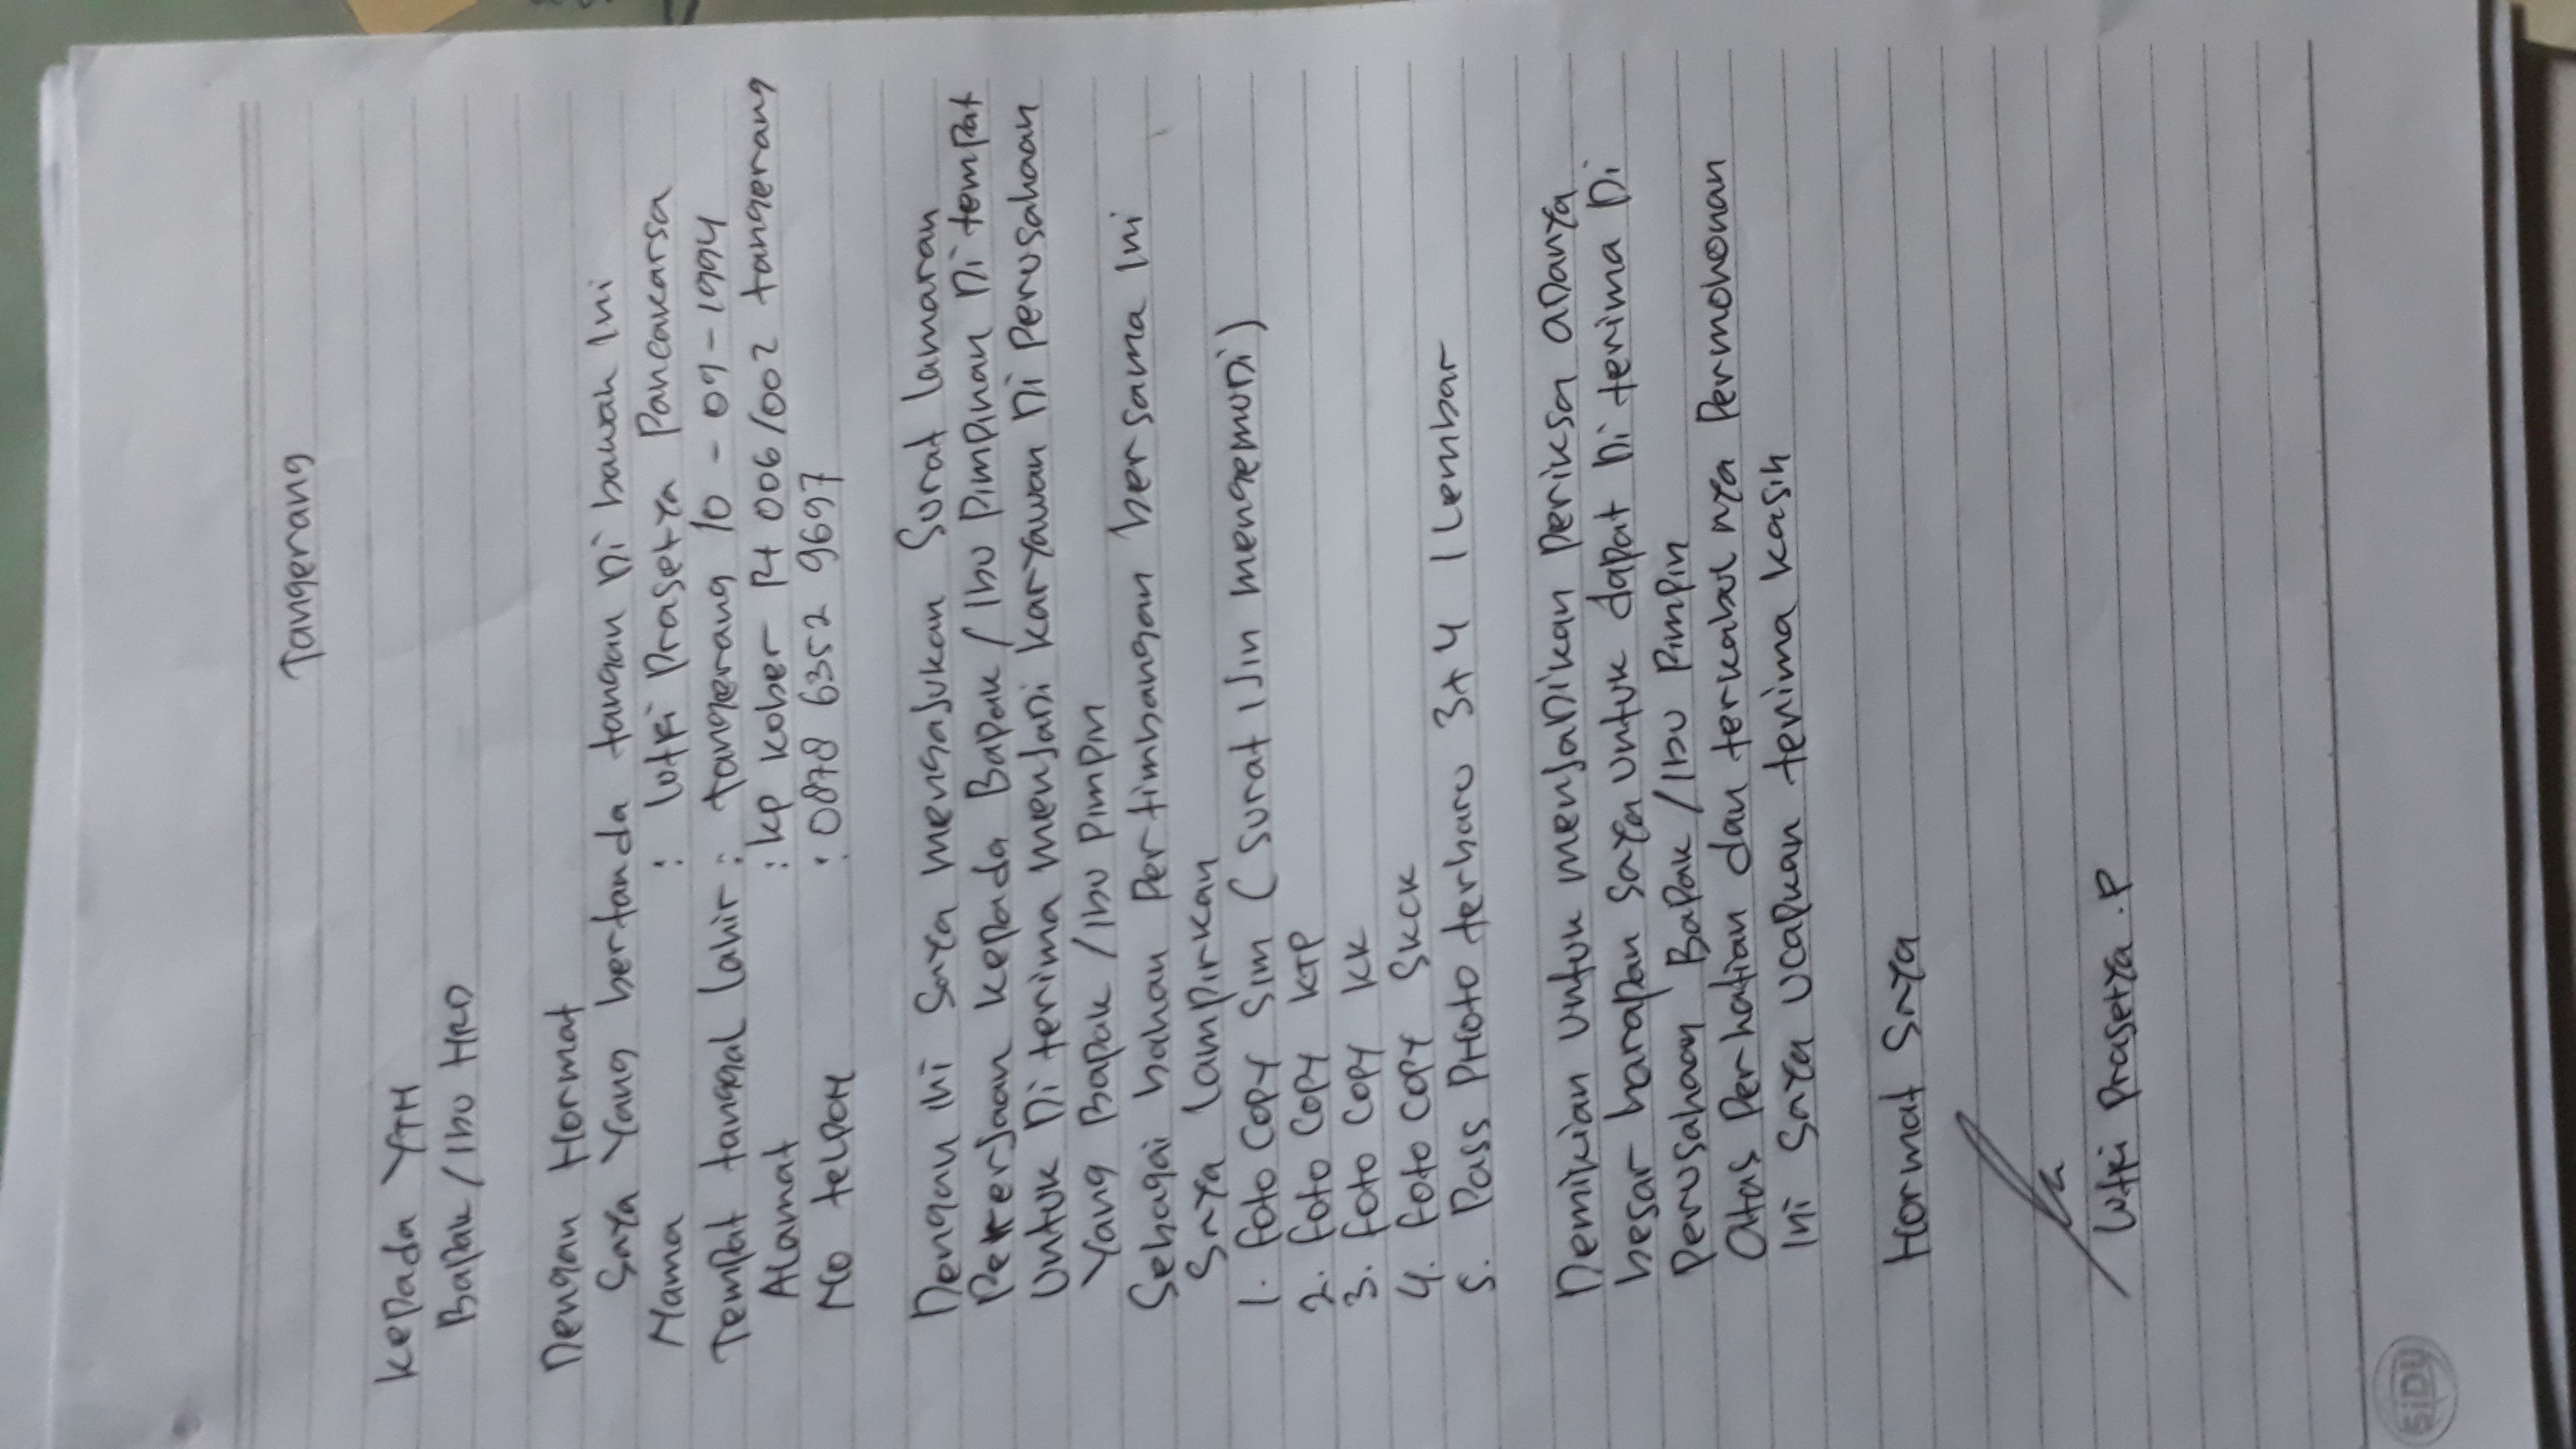 Tangerang
Kepada YTH
Bapak / Ibu HRD
Dengan Hormat
Saya Yang bertanda tangan Di bawah Ini
Nama : lutfi Prasetya Pancakarsa
Tempat tanggal lahir : tangerang 10 - 09 - 1994
Alamat : kp kober Rt 006/002 tangerang
No telpon : 0878 6352 9697
Dengan ini Saya mengajukan Surat lamaran
Pekerjaan kepada Bapak / Ibu Pimpinan Di tempat
Untuk Di terima menjadi karyawan Di Perusahaan
Yang Bapak / Ibu Pimpin
Sebagai bahan Pertimbangan bersama Ini
Saya lampirkan
1. foto Copy Sim ( Surat ijin mengemudi )
2. foto Copy KTP
3. foto Copy KK
4. foto Copy SKCK
5. Pass Photo terbaru 3x4 1 Lembar
Demikian Untuk menjadikan Periksa adanya
besar harapan Saya Untuk dapat Di terima Di
Perusahaan Bapak / Ibu Pimpin
Atas Perhatian dan terkabul nya Permohonan
Ini Saya Ucapkan terima kasih
Hormat Saya
lutfi Prasetya . P
SiDU